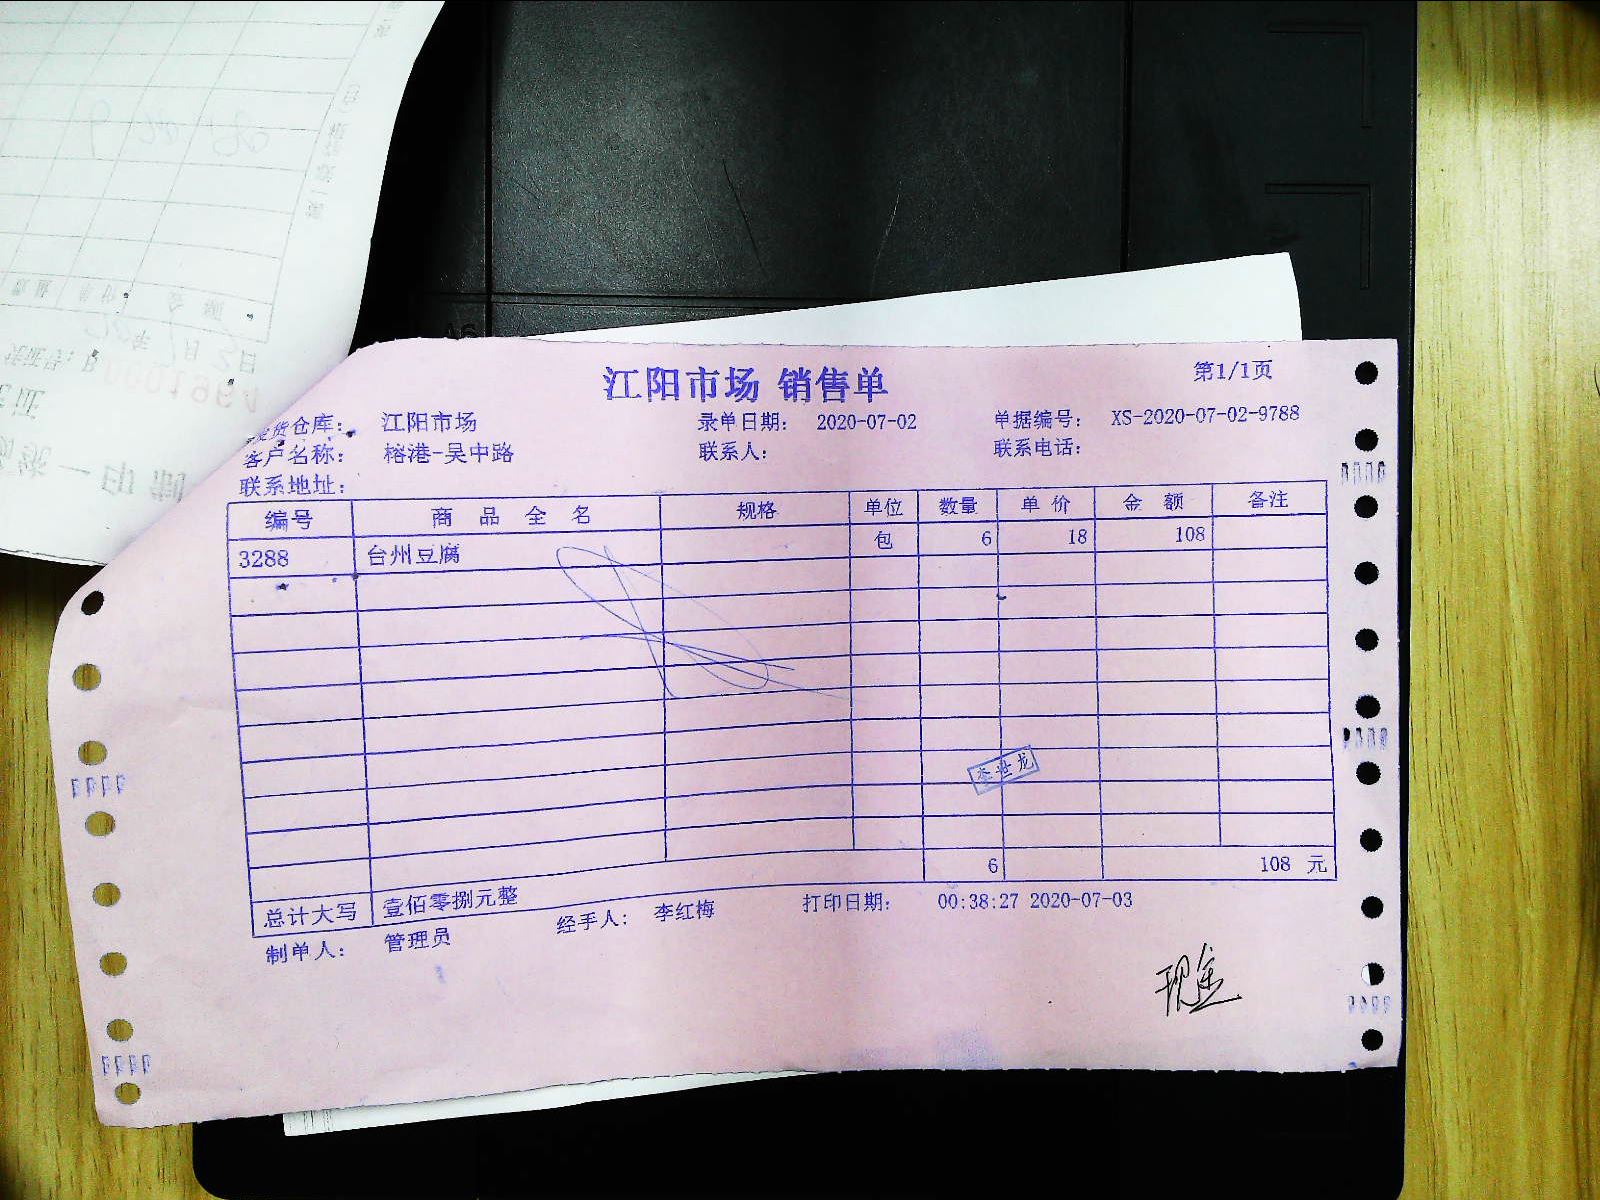 江阳市场 销售单
第1/1页
发货仓库： 江阳市场 录单日期： 2020-07-02 单据编号： XS-2020-07-02-9788
客户名称： 榕港-吴中路 联系人： 联系电话：
联系地址：
编号 商品全名 规格 单位 数量 单价 金额 备注
3288 台州豆腐 包 6 18 108
李世龙
6 108 元
总计大写 壹佰零捌元整
制单人： 管理员 经手人： 李红梅 打印日期： 00:38:27 2020-07-03
现金